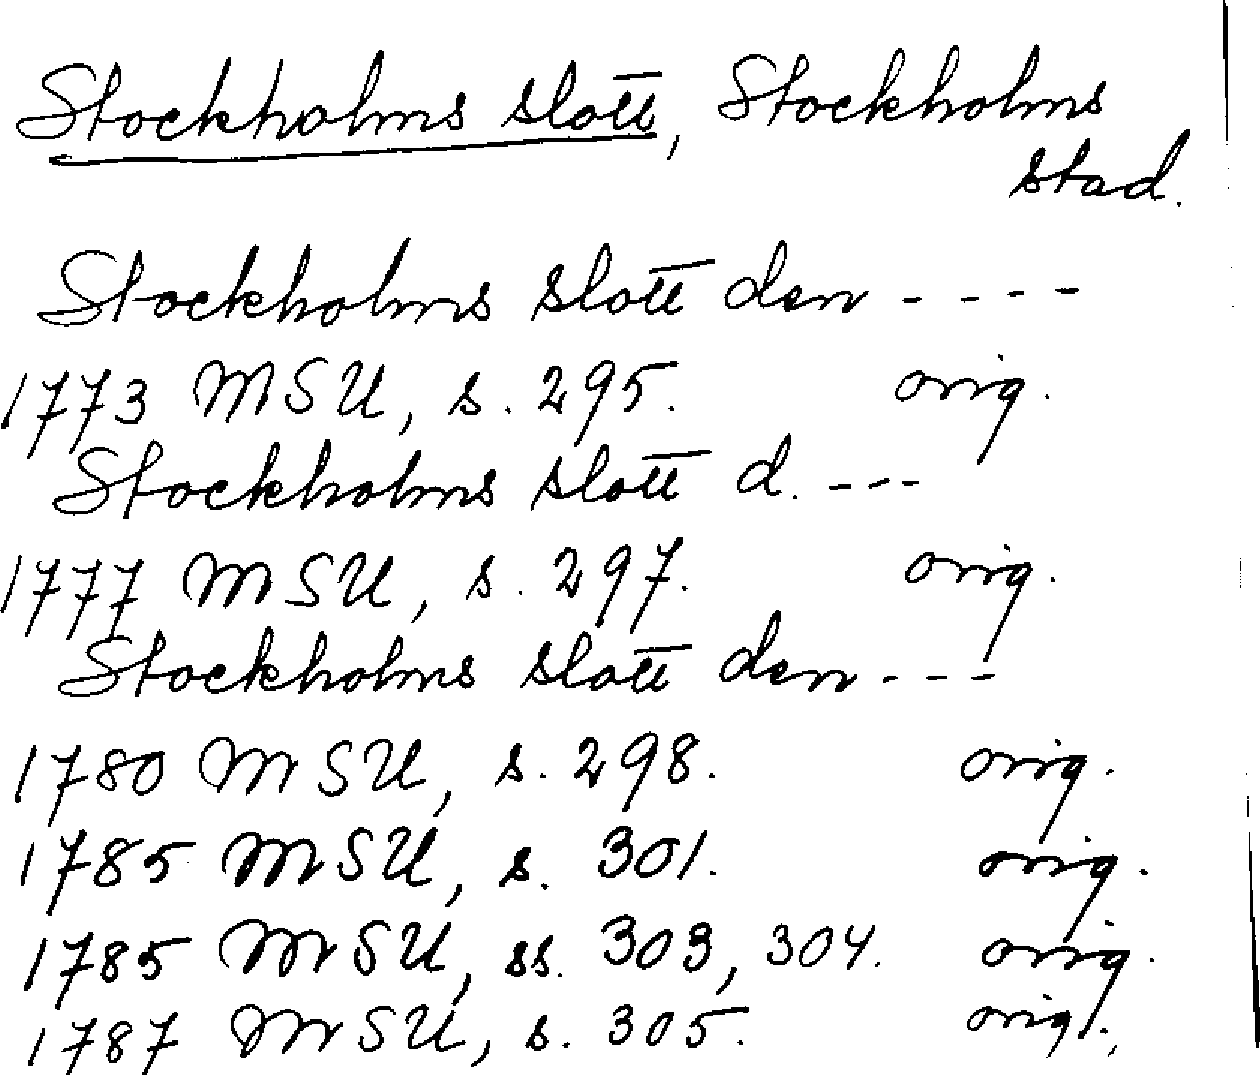 Stockholms slott, Stockholms
stad.
Stockholms slott den ----
1773 MSU, s. 295. orig.
Stockholms slott d. ---
1777 MSU, s. 297. orig.
Stockholms slott den ---
1780 MSU, s. 298. orig.
1785 MSU, s. 301. orig.
1785 MSU, ss. 303, 304. orig.
1787 MSU, s. 305. orig.